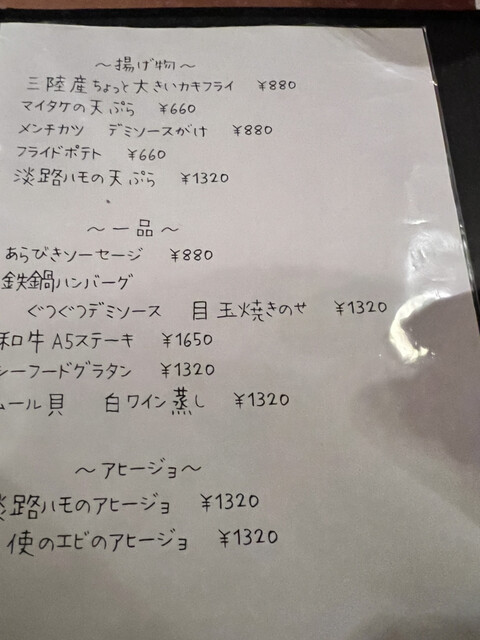 ～揚げ物～
三陸産ちょっと大きいカキフライ ¥880
マイタケの天ぷら ¥660
メンチカツ デミソースがけ ¥880
フライドポテト ¥660
淡路ハモの天ぷら ¥1320
～一品～
あらびきソーセージ ¥880
鉄鍋ハンバーグ
ぐつぐつデミソース 目玉焼きのせ ¥1320
和牛A5ステーキ ¥1650
シーフードグラタン ¥1320
ムール貝 白ワイン蒸し ¥1320
～アヒージョ～
淡路ハモのアヒージョ ¥1320
使のエビのアヒージョ ¥1320